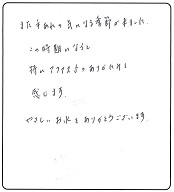 また手あれの気になる季節が来ました。
この時期になると
特にアクアスのありがたみを
感じます。
やさしいお水をありがとうございます